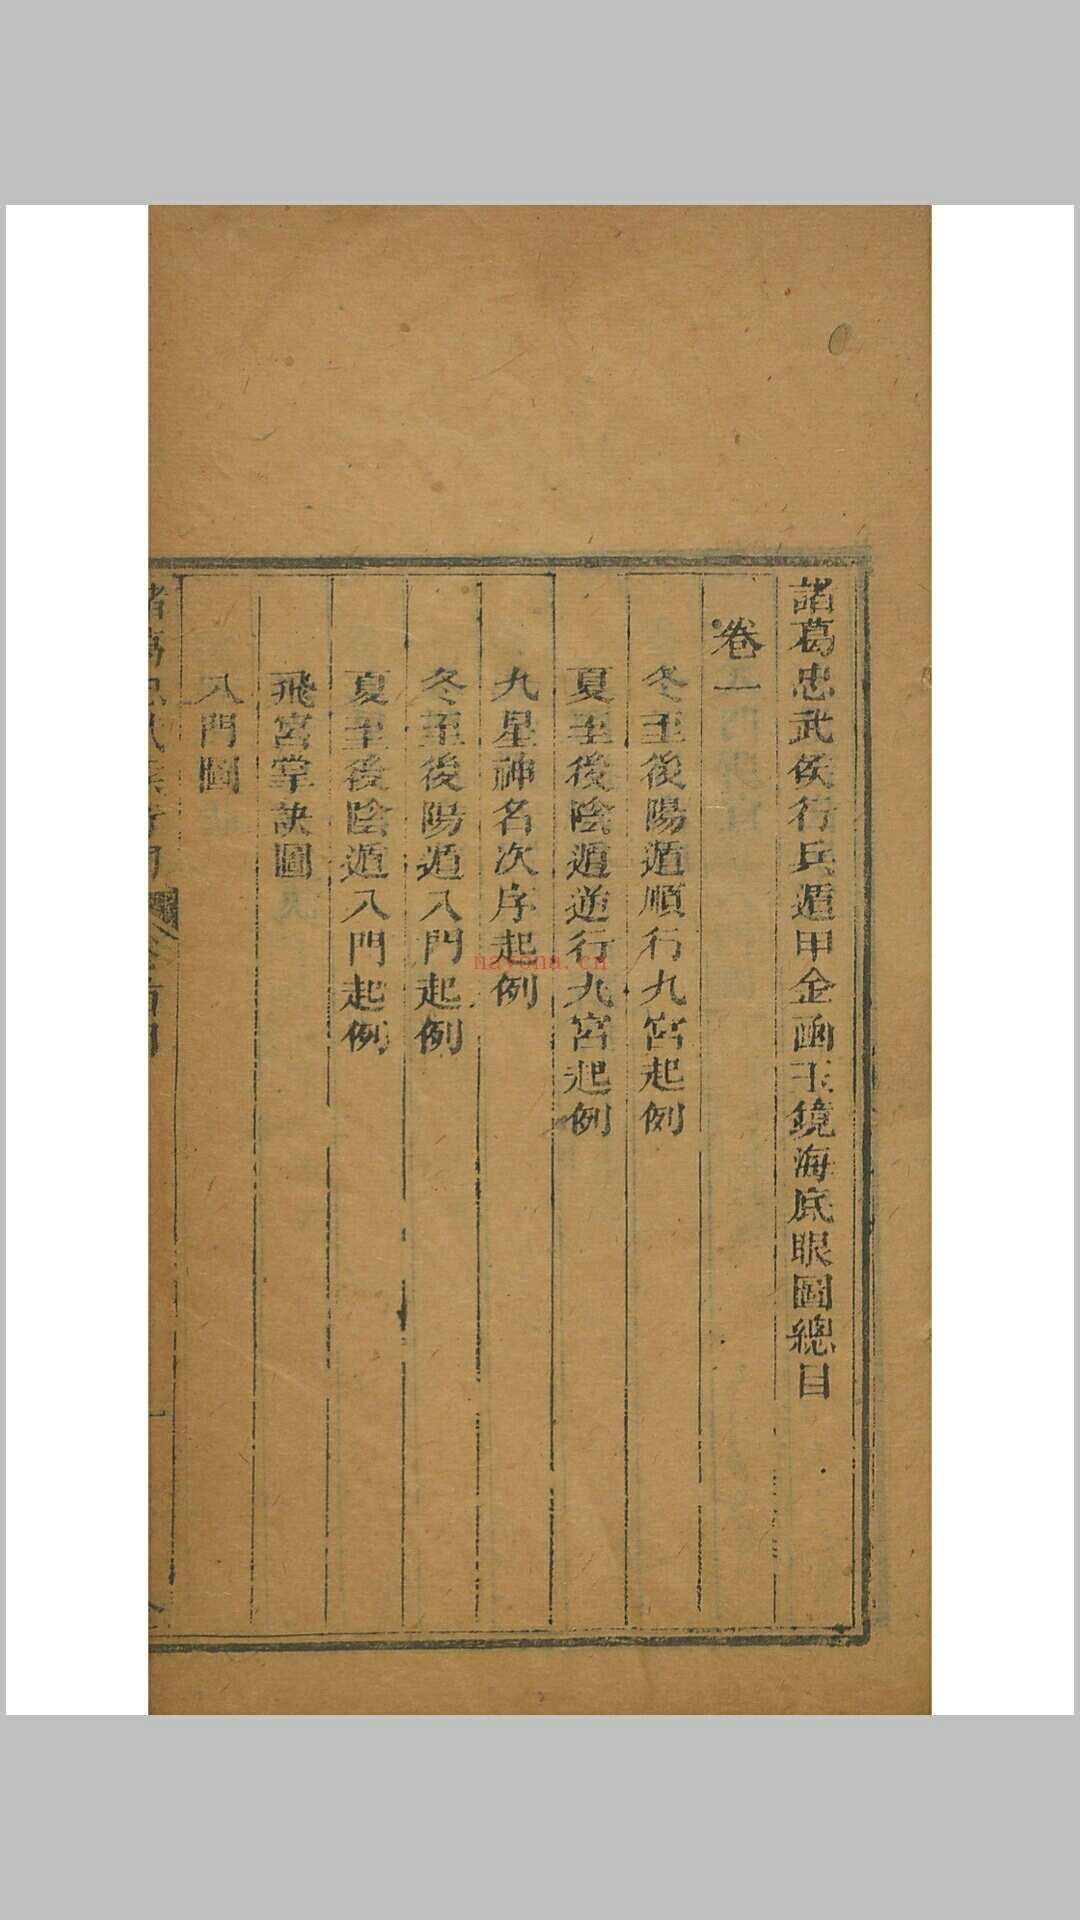 諸葛忠武侯行兵遁甲金函玉鏡海底眼圖總目
卷一
冬至後陽遁順行九宮起例
夏至後陰遁逆行九宮起例
九星神名次序起例
冬至後陽遁八門起例
夏至後陰遁八門起例
飛宮掌訣圖
八門圖
nayona.cn